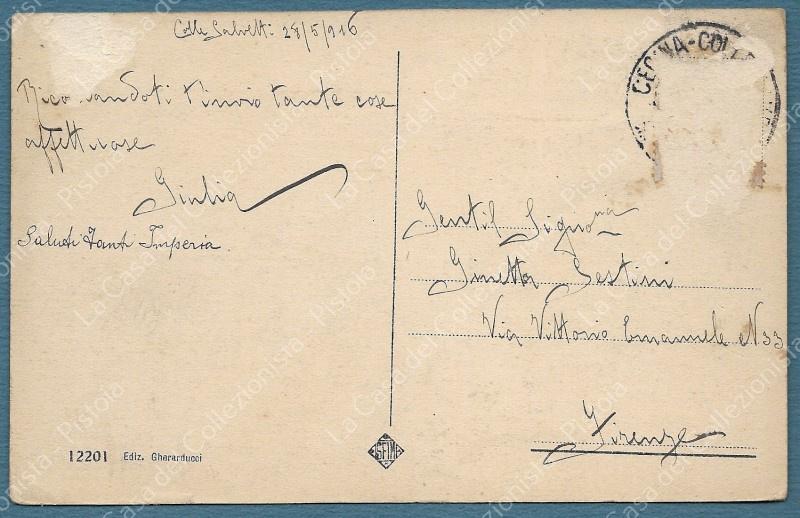 Colle Salvetti 28/5/916
Ricordandoti t'invio tante cose
affettuose
Giulia
Saluti Tanti Imperia.
CECINA-COLLE
Gentil Signora
Ginetta Sestini
Via Vittorio Emanuele N 33
Firenze
12201 Ediz. Gherarducci
SFIM
La Casa del Collezionista - Pistoia